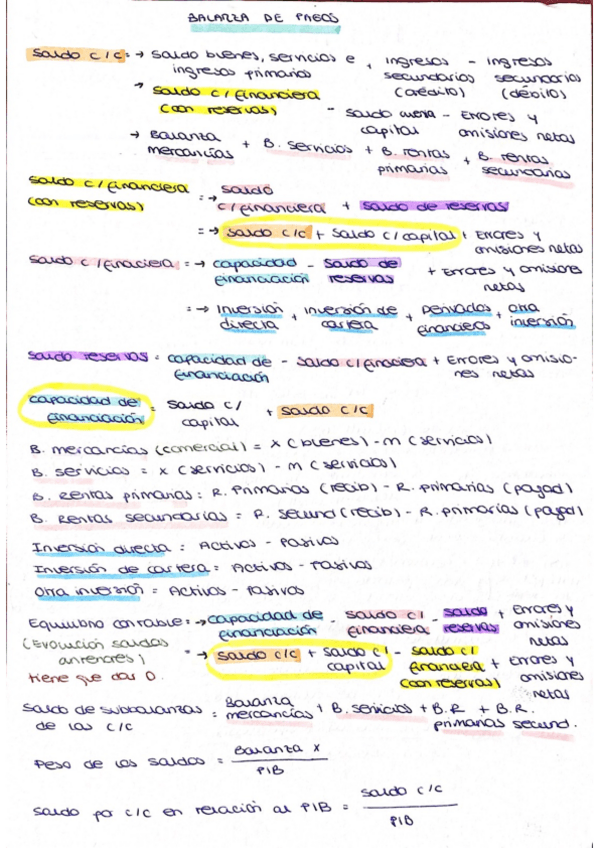 BALANZA DE PAGOS
Saldo C/C = → Saldo bienes, servicios e ingresos primarios + ingresos secundarios (crédito) - ingresos secundarios (débito)
→ Saldo C/financiera (con reservas) - Saldo cuenta capital - Errores y omisiones netas
→ Balanza mercancías + B. servicios + B. rentas primarias + B. rentas secundarias
Saldo C/financiera (con reservas) = → Saldo C/financiera + Saldo de reservas
= → Saldo C/C + Saldo C/capital + Errores y omisiones netas
Saldo C/finaciera = → capacidad financiación - Saldo de reservas + Errores y omisiones netas
= → Inversión directa + Inversión de cartera + Derivados financieros + Otra inversión
Saldo reservas = capacidad de financiación - Saldo C/finaciera + Errores y omisiones netas
Capacidad de financiación = Saldo C/capital + Saldo C/C
B. mercancías (comercial) = X (bienes) - M (servicios)
B. servicios = X (servicios) - M (servicios)
B. Rentas primarias = R. Primarias (recib) - R. primarias (pagad)
B. Rentas secundarias = R. secund (recib) - R. primarias (pagad)
Inversión directa = Activos - Pasivos
Inversión de cartera = Activos - Pasivos
Otra inversión = Activos - Pasivos
Equilibrio contable = → capacidad de financiación - Saldo C/financiera - Saldo reservas + Errores y omisiones netas
(Evolución saldos anteriores) tiene que dar 0.
= → Saldo C/C + Saldo C/capital - Saldo C/financiera (con reservas) + Errores y omisiones netas
Saldo de subbalanzas de las C/C = Balanza mercancías + B. servicios + B.R primarias + B.R. secund.
Peso de los saldos = Balanza X / PIB
Saldo por C/C en relación al PIB = Saldo C/C / PIB